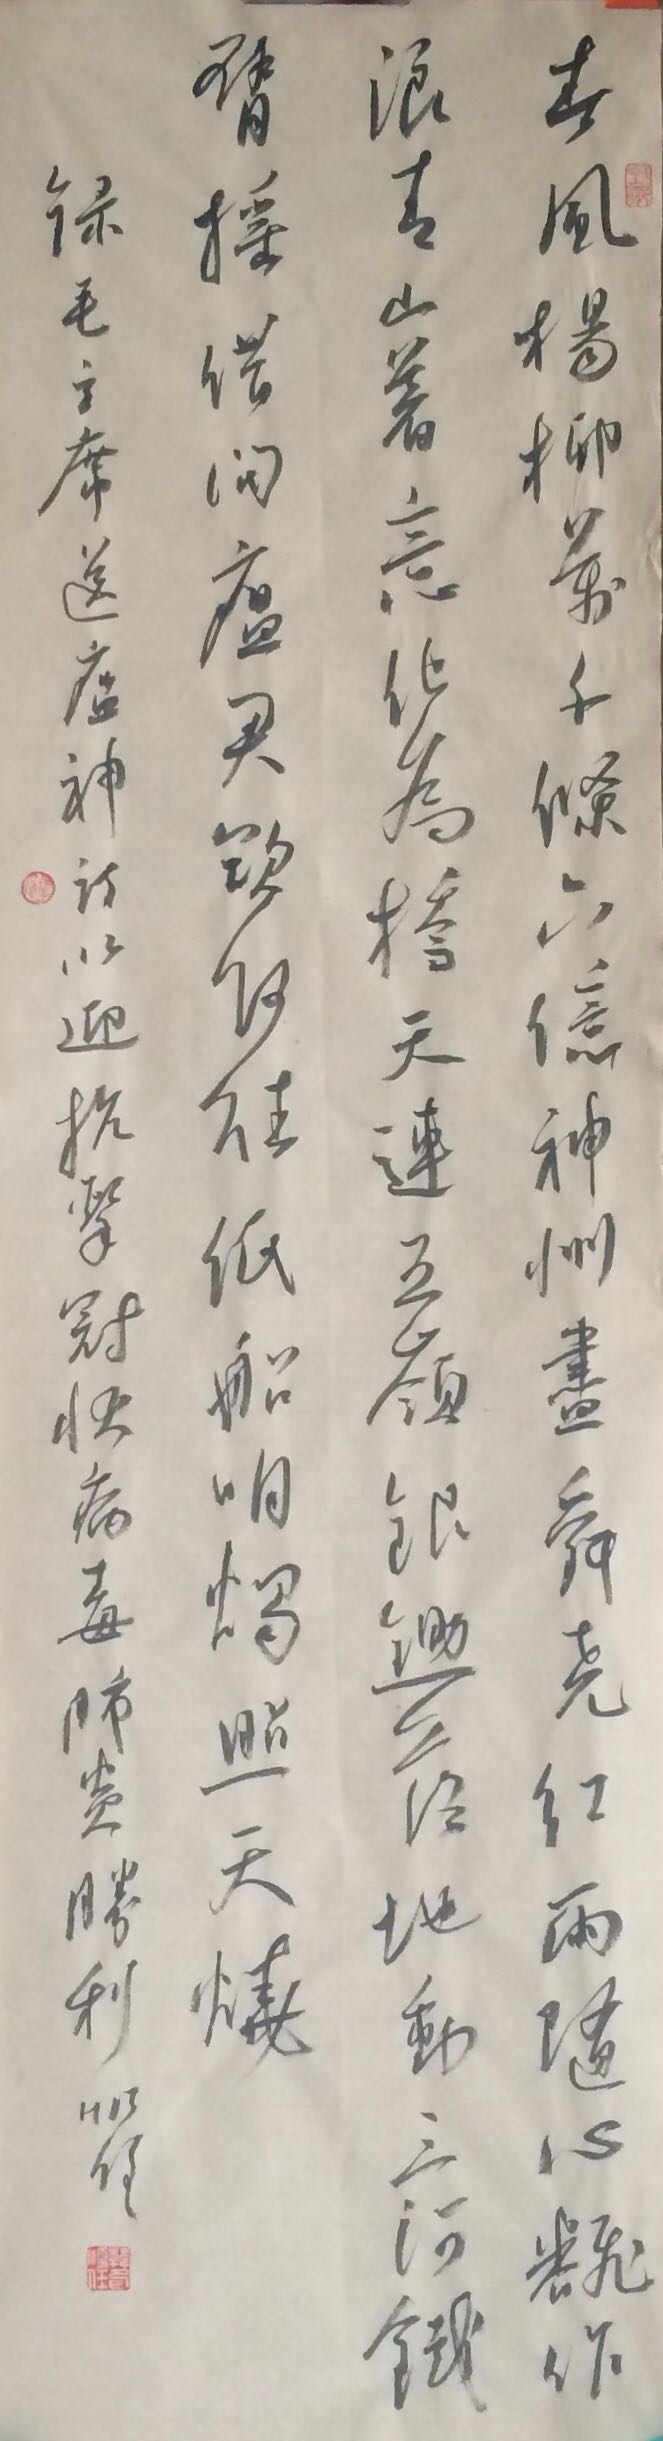 春風楊柳萬千條六億神州盡舜堯紅雨隨心翻作
浪青山著意化為橋天連五嶺銀鋤落地動三河鐵
臂搖借問瘟君欲何往紙船明燭照天燒
錄毛主席送瘟神詩以迎抗擊冠狀病毒肺炎勝利